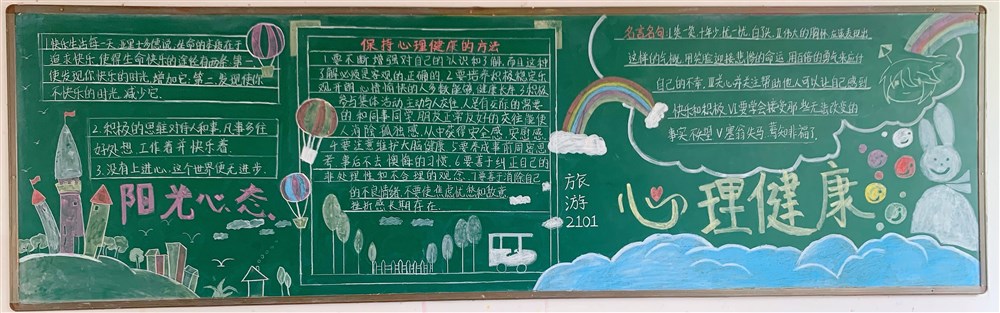 1.快乐生活每一天.亚里士多德说,生命的本质在于
追求快乐,使得生命快乐的途径有两条:第一
使发现你快乐的时光,增加它:第二,发现使你
不快乐的时光,减少它.
2.积极的思维对待人和事,凡事多往
好处想.工作着并快乐着
3.没有上进心,这个世界便无进步.
阳光心态
保持心理健康的方法
1.要不断增强对自己的认识和了解,而且这种
了解必须是客观的,正确的.2.要培养积极稳定乐
观开朗,心情愉快的人多数能够健康长寿3.积极
参与集体活动,主动与人交往,人是有交际的需要
的,和同事同学朋友正常友好的交往能使
人消除孤独感,从中获得安全感,安慰感.
4.要注意维护大脑健康.5.要养成事前周密思
考,事后不去懊悔的习惯.6.要善于纠正自己的
非处理性和不合理的观念.7.要善于消除自己
的不良情绪,不要使焦虑忧愁和敌意
挫折感长期存在.
旅
游
2101
名言名句:1.笑一笑十年少,愁一愁,白了头.Ⅱ.伟大的胸怀,应该表现出
这样的气概,用笑脸迎接悲惨的命运,用百倍的勇气来应付
自己的不幸.Ⅲ.关心并关注帮助他人可以让自己感到
快乐和积极.Ⅵ.要学会接受那些无法改变的
事实.Ⅴ.塞翁失马,焉知非福了
心理健康